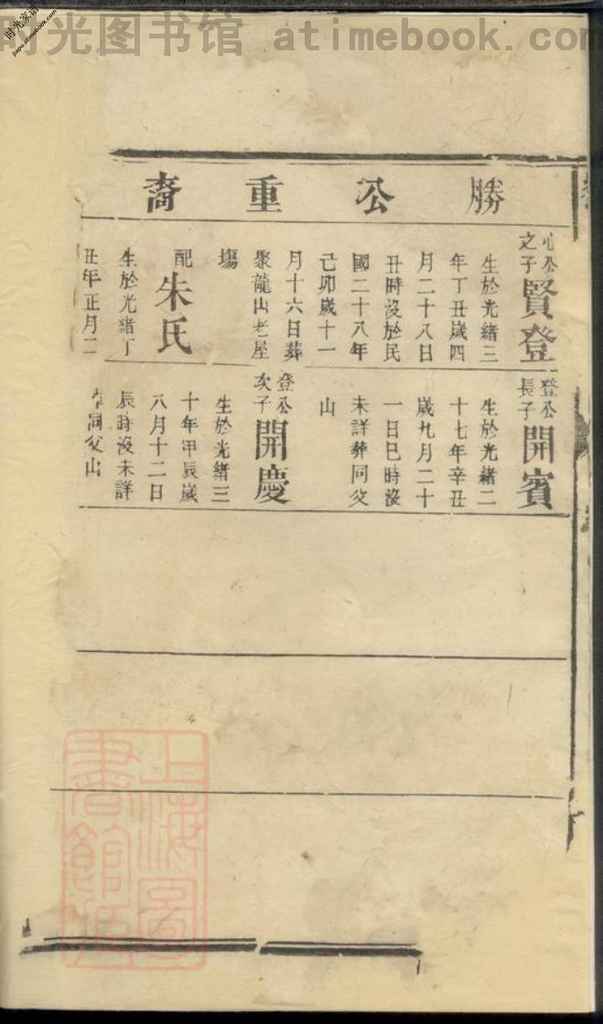 时光图书馆 atimebook.com
勝公重裔
心公
之子
賢登
生於光緒三
年丁丑歲四
月二十八日
丑時沒於民
國二十八年
己卯歲十一
月十六日葬
聚龍山老屋
塲
配
朱氏
生於光緒丁
丑年正月二
登公
長子
開賓
生於光緒二
十七年辛丑
歲九月二十
一日巳時沒
未詳葬同父
山
登公
次子
開慶
生於光緒三
十年甲辰歲
八月十二日
辰時沒未詳
葬同父山
上海圖
書館藏